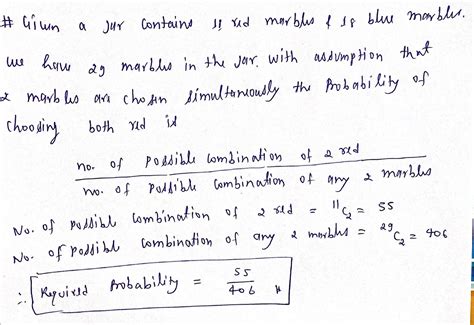 # Given a jar contains 11 red marbles & 18 blue marbles.
we have 29 marbles in the jar. with assumption that
2 marbles are chosen simultaneously the Probability of
choosing both red is
no. of possible combination of 2 red
no. of possible combination of any 2 marbles
No. of possible combination of 2 red = ¹¹C₂ = 55
No. of possible combination of any 2 marbles = ²⁹C₂ = 406
∴ Required Probability = 55/406